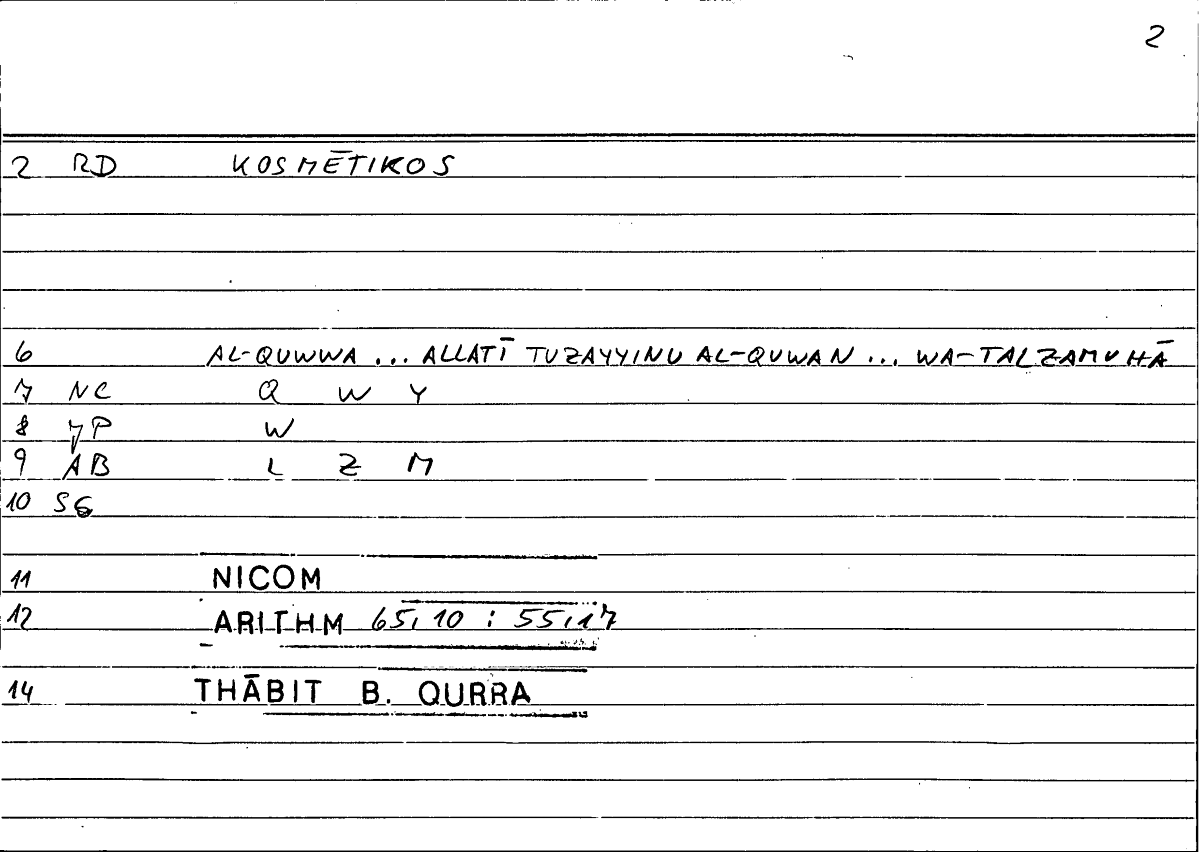 2
2 RD KOSMĒTIKOS
6 AL-QUWWA ... ALLATĪ TUZAYYINU AL-QUWAN ... WA-TALZAMUHĀ
7 NC Q W Y
8 JP W
9 AB L Z M
10 SG
11 NICOM
12 ARITHM 65,10 : 55,17
14 THĀBIT B. QURRA